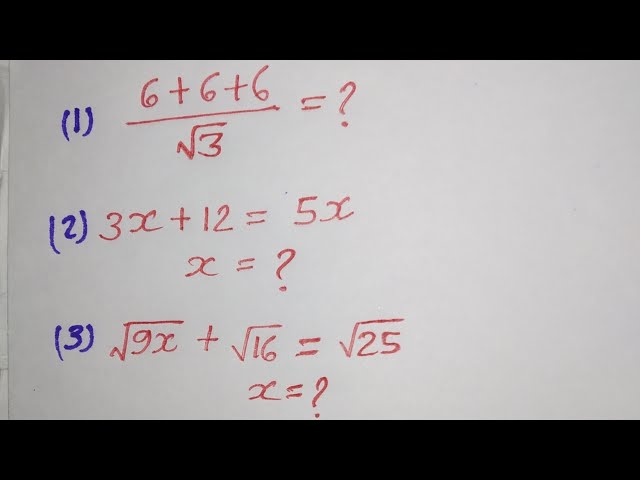 (1) (6+6+6)/√3 = ?
(2) 3x+12 = 5x
x = ?
(3) √9x + √16 = √25
x = ?